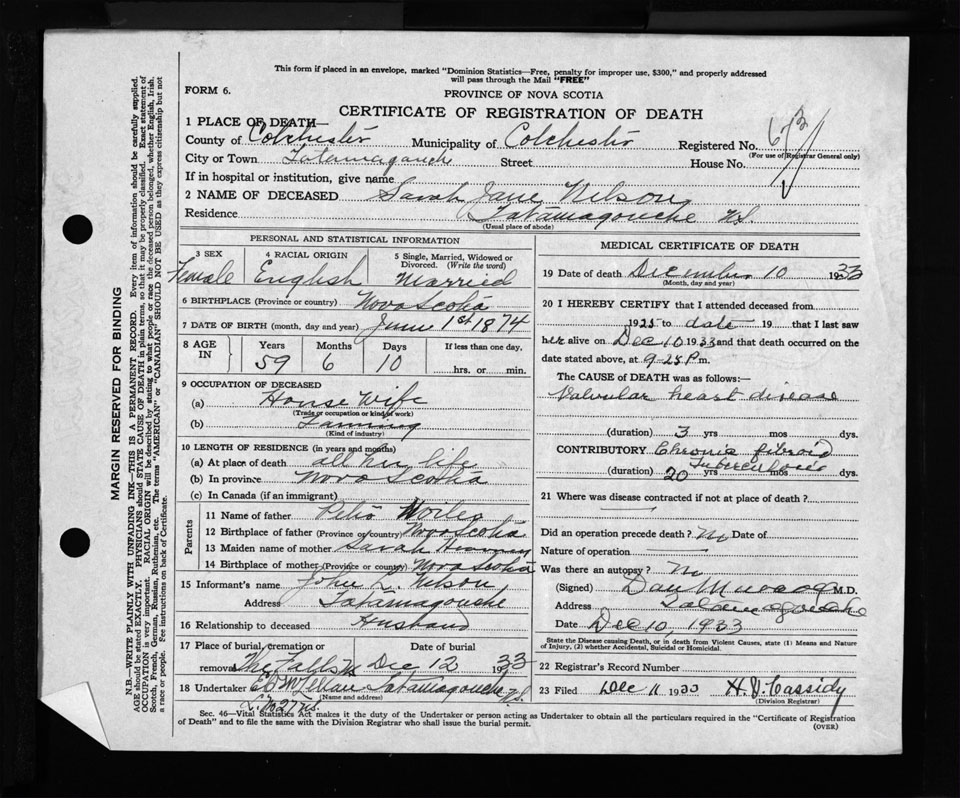 This form if placed in an envelope, marked "Dominion Statistics—Free, penalty for improper use, $300," and properly addressed
will pass through the Mail "FREE"
FORM 6.
PROVINCE OF NOVA SCOTIA
CERTIFICATE OF REGISTRATION OF DEATH
1 PLACE OF DEATH—
County of Colchester Municipality of Colchester Registered No. 673
(For use of Registrar General only)
City or Town Tatamagouche Street House No.
If in hospital or institution, give name
2 NAME OF DECEASED Sarah Jane Nelson
Residence Tatamagouche N.S.
(Usual place of abode)
PERSONAL AND STATISTICAL INFORMATION
3 SEX 4 RACIAL ORIGIN 5 Single, Married, Widowed or Divorced. (Write the word)
Female English Married
6 BIRTHPLACE (Province or country) Nova Scotia
7 DATE OF BIRTH (month, day and year) June 1st 1874
8 AGE IN Years Months Days If less than one day,
59 6 10 hrs. or min.
9 OCCUPATION OF DECEASED
(a) House Wife
(Trade or occupation or kind of work)
(b) Farming
(Kind of industry)
10 LENGTH OF RESIDENCE (in years and months)
(a) At place of death all her life
(b) In province Nova Scotia
(c) In Canada (if an immigrant)
Parents
11 Name of father
12 Birthplace of father (Province or country) Nova Scotia
13 Maiden name of mother Sarah
14 Birthplace of mother (Province or country) Nova Scotia
15 Informant's name John Nelson
Address Tatamagouche
16 Relationship to deceased Husband
17 Place of burial, cremation or
removal The Falls Dec 12 1933
18 Undertaker Tatamagouche N.S.
(Name and address)
MEDICAL CERTIFICATE OF DEATH
19 Date of death December 10 1933
(Month, day and year)
20 I HEREBY CERTIFY that I attended deceased from
1925 to date 19 that I last saw
her alive on Dec 10 1933 and that death occurred on the
date stated above, at 9-25 P m.
The CAUSE of DEATH was as follows:—
Valvular heart disease
(duration) 3 yrs mos dys.
CONTRIBUTORY Chronic fibroid
Tuberculosis
(duration) 20 yrs mos dys.
21 Where was disease contracted if not at place of death?
Did an operation precede death? No Date of
Nature of operation
Was there an autopsy? No
(Signed) Dan Murray M.D.
Address Tatamagouche
Date Dec 10 1933
State the Disease causing Death, or in death from Violent Causes, state (1) Means and Nature
of Injury, (2) whether Accidental, Suicidal or Homicidal.
22 Registrar's Record Number
23 Filed Dec 11 1933 H. J. Cassidy
(Division Registrar)
Sec. 46—Vital Statistics Act makes it the duty of the Undertaker or person acting as Undertaker to obtain all the particulars required in the "Certificate of Registration
of Death" and to file the same with the Division Registrar who shall issue the burial permit.
(OVER)
MARGIN RESERVED FOR BINDING
N.B.—WRITE PLAINLY WITH UNFADING INK—THIS IS A PERMANENT RECORD. Every item of information should be carefully supplied.
AGE should be stated EXACTLY. PHYSICIANS should STATE CAUSE OF DEATH in plain terms, so that it may be properly classified. Exact statement of
OCCUPATION is very important. RACIAL ORIGIN will be described by stating to what people or race the deceased person belonged, whether English, Irish,
Scotch, French, German, Russian, Ruthenian, etc. The terms "AMERICAN" or "CANADIAN" SHOULD NOT BE USED as they express citizenship but not
a race or people. See instructions on back of Certificate.